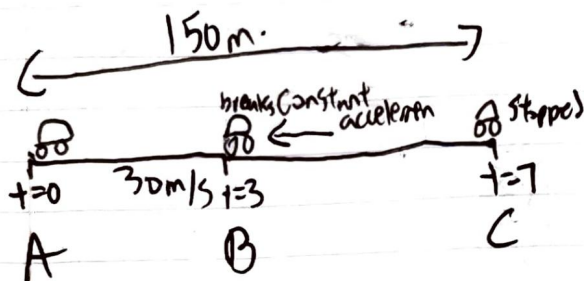 150m.
breaks Constant
acceleration
stopped
t=0
30m/s
t=3
t=7
A
B
C